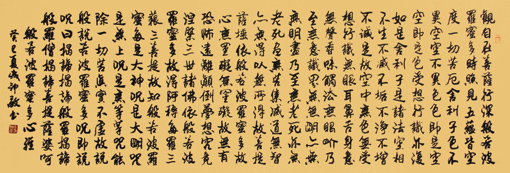 觀自在菩薩行深般若波
羅蜜多時照見五蘊皆空
度一切苦厄舍利子色不
異空空不異色色即是空
空即是色受想行識亦復
如是舍利子是諸法空相
不生不滅不垢不淨不增
不減是故空中無色無受
想行識無眼耳鼻舌身意
無色聲香味觸法無眼界乃
至無意識界無無明亦無
無明盡乃至無老死亦無
老死盡無苦集滅道無智
亦無得以無所得故菩提
薩埵依般若波羅蜜多故
心無罣礙無罣礙故無有
恐怖遠離顛倒夢想究竟
涅槃三世諸佛依般若波
羅蜜多故得阿耨多羅三
藐三菩提故知般若波羅
蜜多是大神咒是大明咒
是無上咒是無等等咒能
除一切苦真實不虛故說
般若波羅蜜多咒即說
咒曰揭諦揭諦波羅揭諦
波羅僧揭諦菩提薩婆呵
般若波羅蜜多心經
癸巳夏敬書